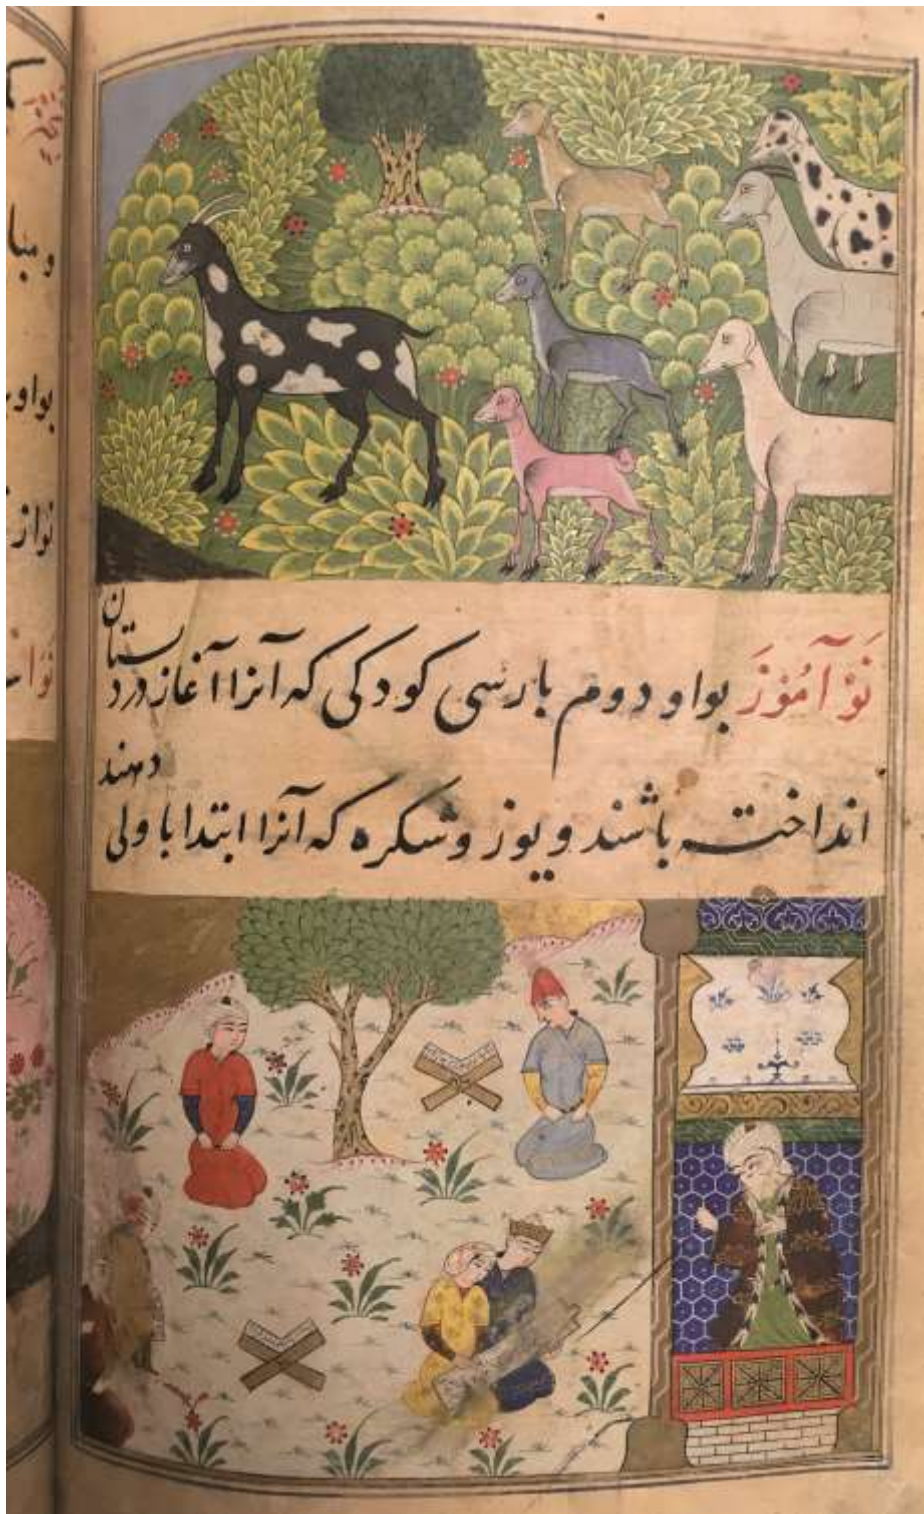 نَوْ آمُوْزَ بواو دوم بارسی کودکی که آنرا آغاز در دبستان
انداخته باشند و یوز و شکره که آنرا ابتدا باولی دهند